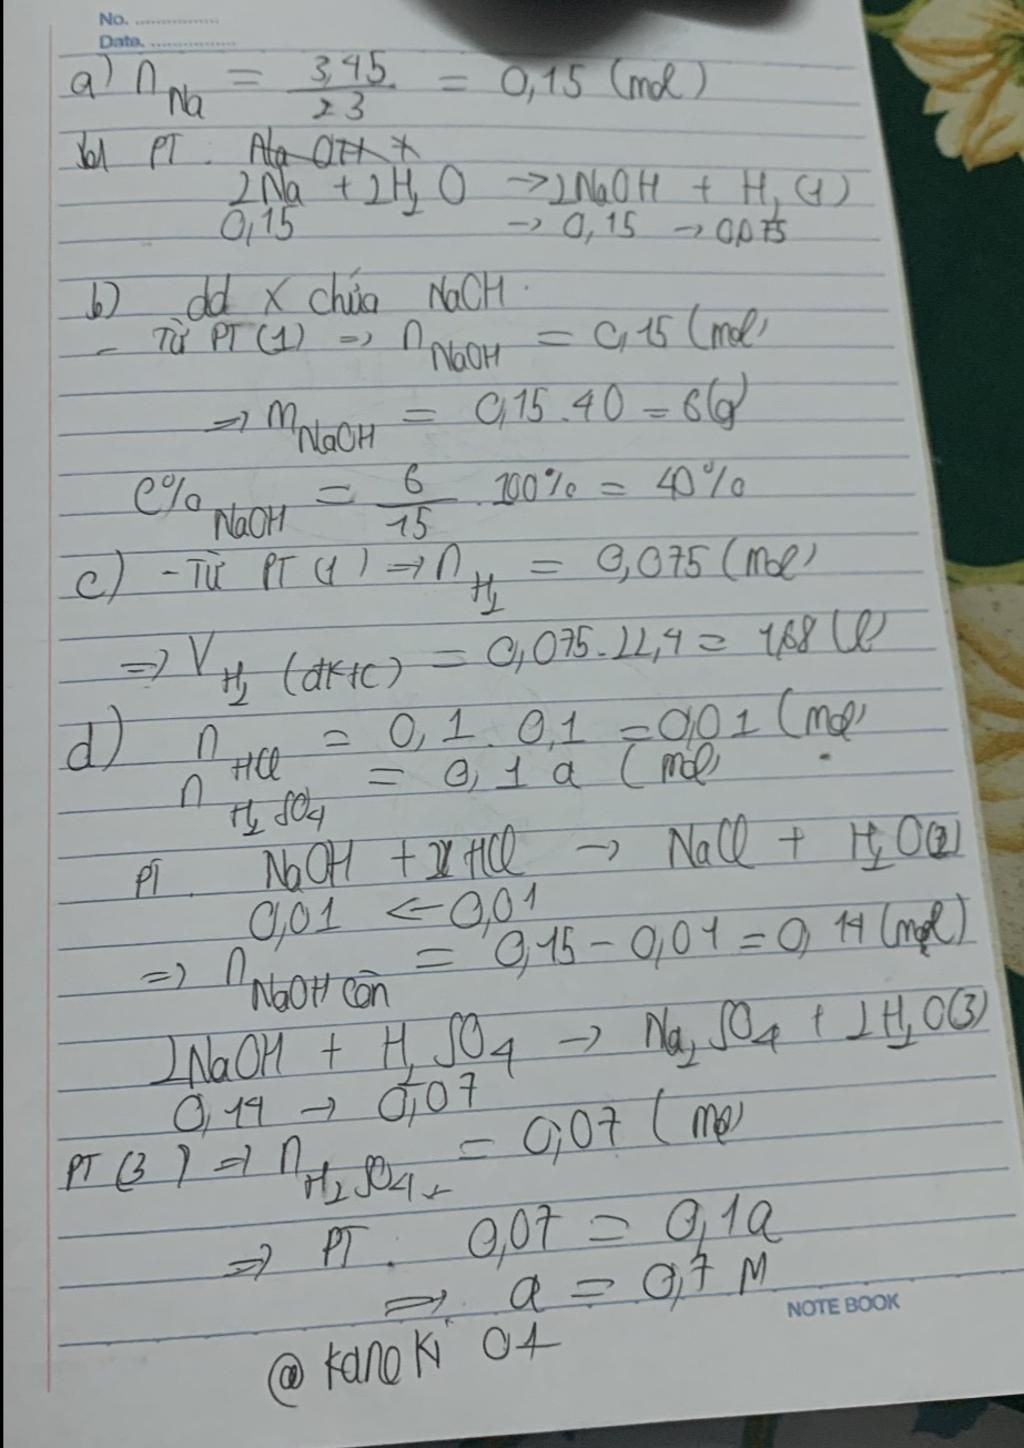 No. ................
Date. ................
a) n Na = 3,45 / 23 = 0,15 (mol)
PT.
2Na + 2H2O → 2NaOH + H2 (1)
0,15 → 0,15 → 0,075
b) dd X chứa NaOH.
- Từ PT (1) => n NaOH = 0,15 (mol)
=> m NaOH = 0,15 . 40 = 6 (g)
C% NaOH = 6 / 15 . 100% = 40%
c) - Từ PT (1) => n H2 = 0,075 (mol)
=> V H2 (đktc) = 0,075 . 22,4 = 1,68 (l)
d) n HCl = 0,1 . 0,1 = 0,01 (mol)
n H2SO4 = 0,1 a (mol)
PT. NaOH + HCl → NaCl + H2O (2)
0,01 ← 0,01
=> n NaOH còn = 0,15 - 0,01 = 0,14 (mol)
2NaOH + H2SO4 → Na2SO4 + 2H2O (3)
0,14 → 0,07
PT (3) => n H2SO4 = 0,07 (mol)
=> PT. 0,07 = 0,1a
=> a = 0,7 M
NOTE BOOK
@ kaneki 04